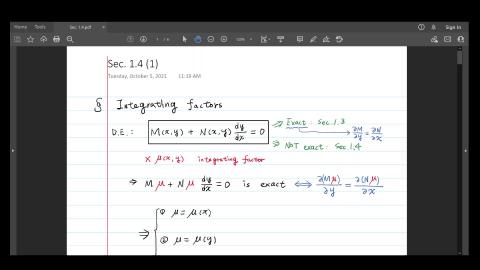 Home Tools Sec. 1.4.pdf × Sign In
1 / 6
Sec. 1.4 (1)
Tuesday, October 5, 2021 11:19 AM
§ Integrating factors
D.E.: M(x,y) + N(x,y) dy/dx = 0
⇒ Exact: Sec. 1.3 ∂M/∂y = ∂N/∂x
⇒ NOT exact: Sec. 1.4
× μ(x,y) integrating factor
⇒ Mμ + Nμ dy/dx = 0 is exact ⇔ ∂(Mμ)/∂y = ∂(Nμ)/∂x
① μ = μ(x)
⇒
② μ = μ(y)